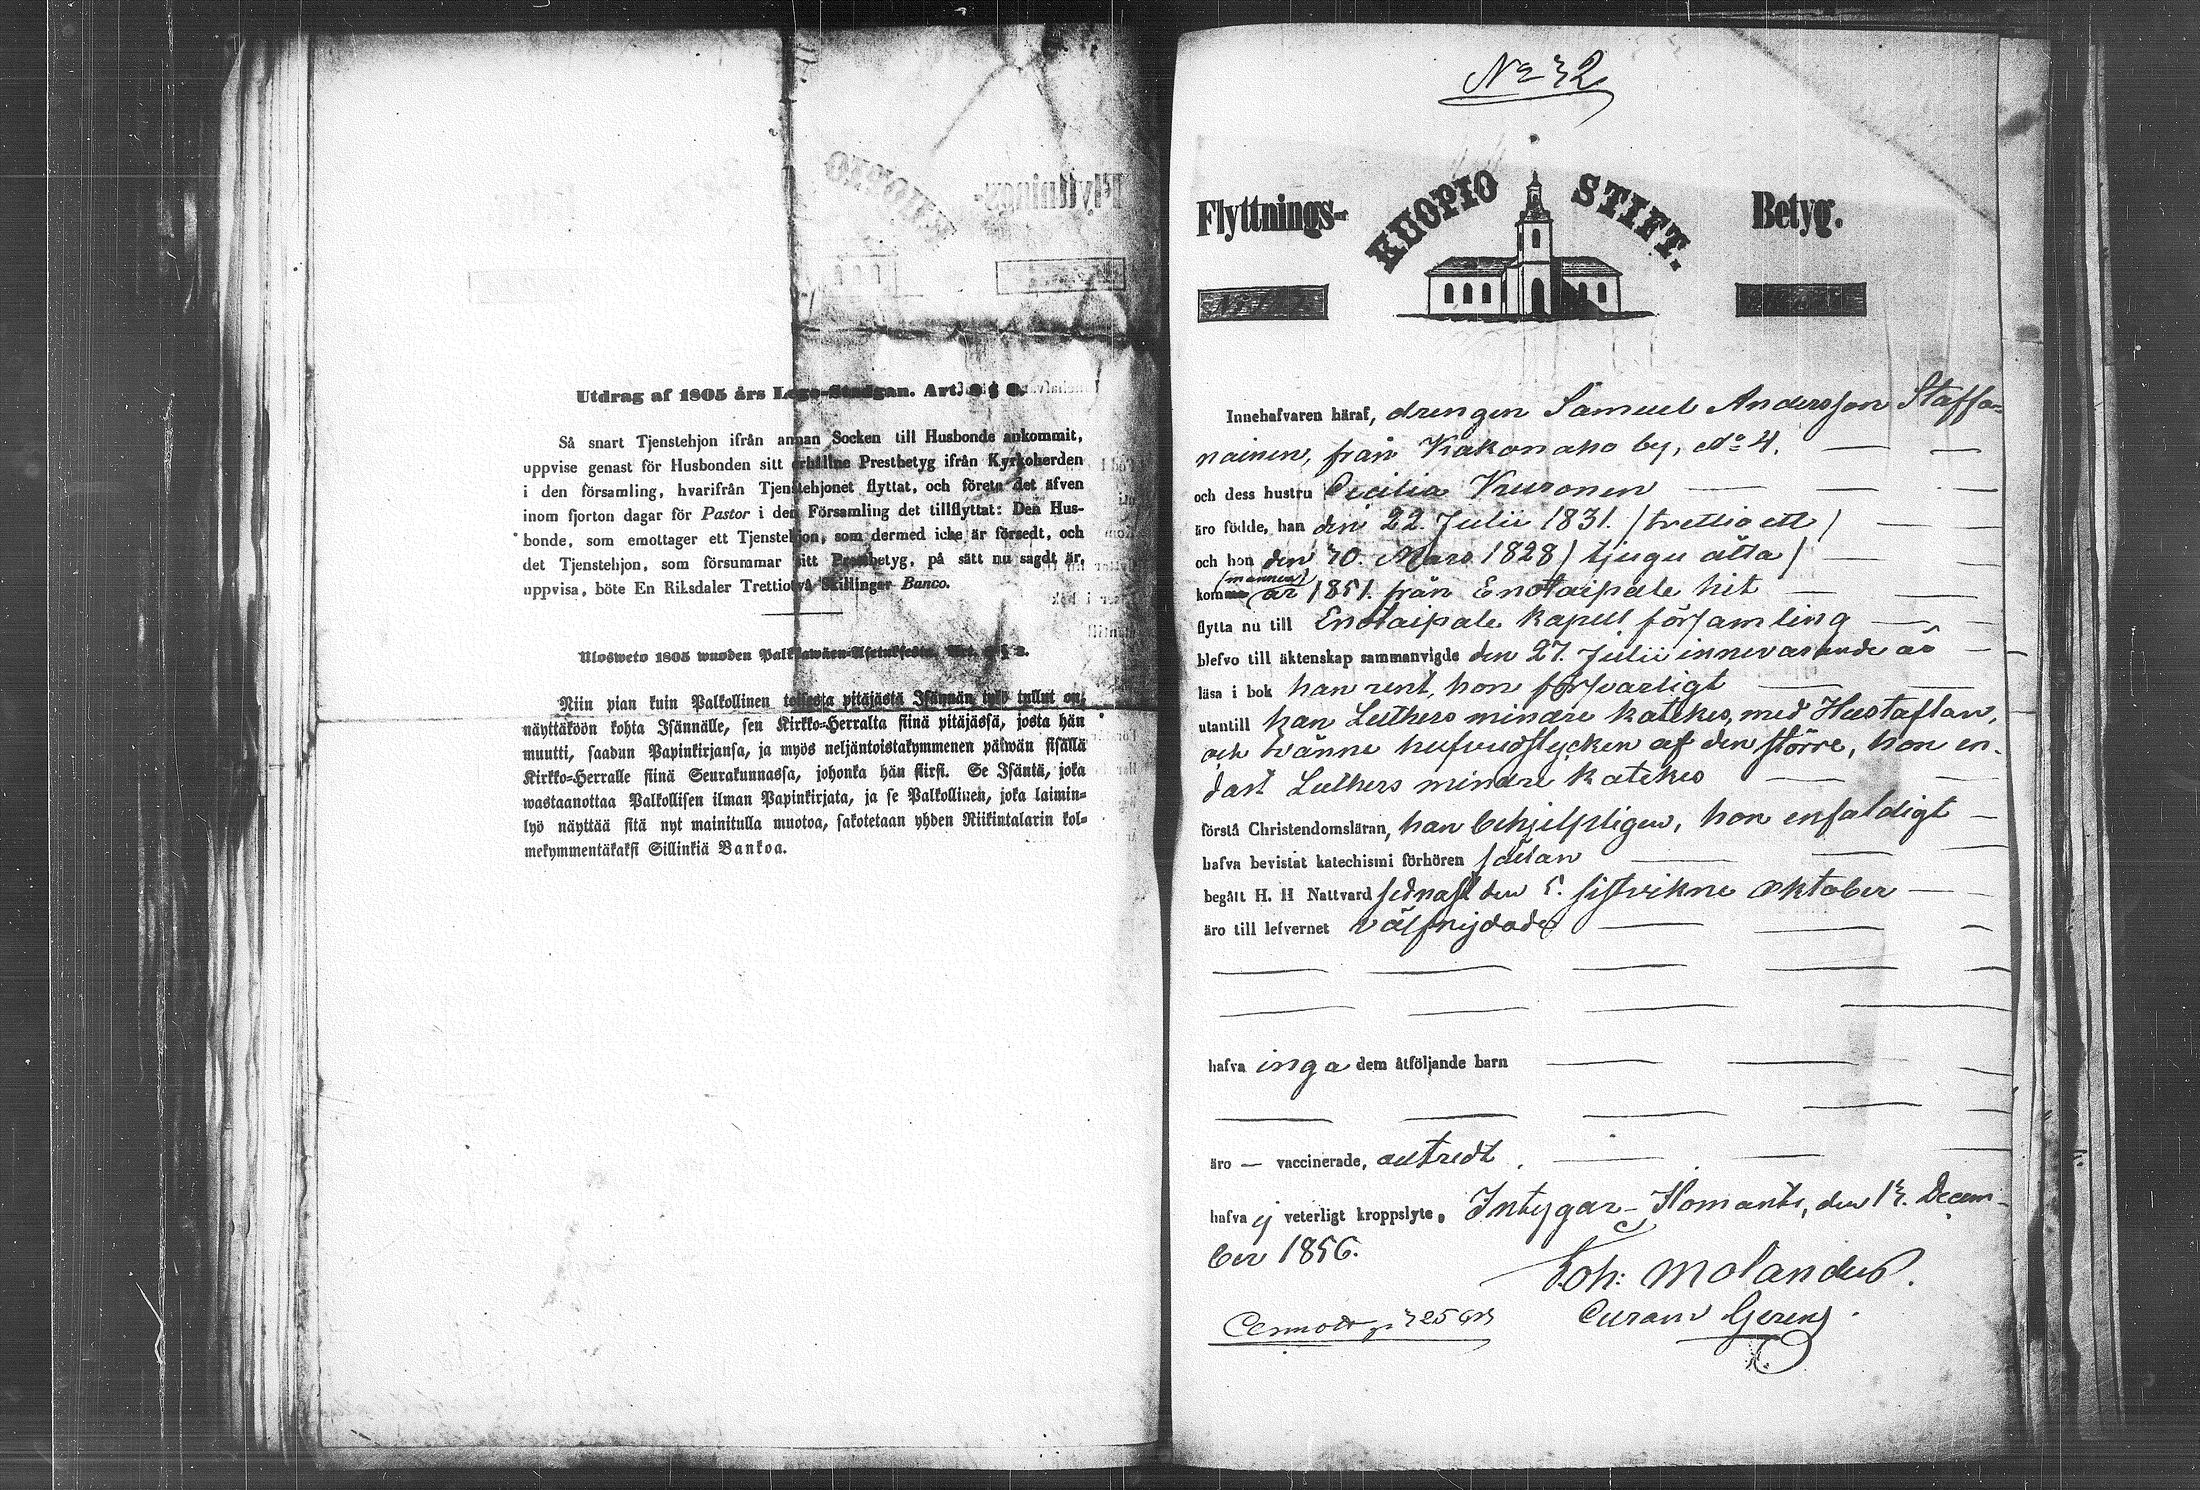 Utdrag af 1805 års Lego-Stadgan. Art. 2 § 2.
Så snart Tjenstehjon ifrån annan Socken till Husbonde ankommit,
uppvise genast för Husbonden sitt erhållne Prestbetyg ifrån Kyrkoherden
i den församling, hvarifrån Tjenstehjonet flyttat, och förete det äfven
inom fjorton dagar för Pastor i den Församling det tillflyttat: Den Hus-
bonde, som emottager ett Tjenstehjon, som dermed icke är försedt, och
det Tjenstehjon, som försummar sitt Prestbetyg, på sätt nu sagdt är,
uppvisa, böte En Riksdaler Trettiotvå Skillingar Banco.
Ulosweto 1805 wuoden Palkkawäen-Asetuksesta. Art. 2 § 2.
Niin pian kuin Palkollinen toisesta pitäjästä Isännän työ tullut on,
näyttäköön kohta Isännälle, sen Kirkko-Herralta siinä pitäjässä, josta hän
muutti, saadun Papinkirjansa, ja myös neljäntoistakymmenen päiwän sisällä
Kirkko-Herralle siinä Seurakunnassa, johonka hän siirsi. Se Isäntä, joka
wastaanottaa Palkollisen ilman Papinkirjata, ja se Palkollinen, joka laimin-
lyö näyttää sitä nyt mainitulla muotoa, sakotetaan yhden Riikintalarin kol-
mekymmentäkaksi Sillinkiä Bankoa.
No 32
Flyttnings- KUOPIO STIFT. Betyg.
Innehafvaren häraf, drengen Samuel Andersson Staffa-
nainen, från Kakonaho by, No 4.
och dess hustru Cecilia Kuronen
äro födde, han den 22. Julii 1831. (trettio ett)
och hon den 30. Mars 1828 (tjugu åtta)
(mannen)
komm år 1851. från Enotaipale hit
flytta nu till Enotaipale kapell församling
blefvo till äktenskap sammanvigde den 27. Julii innevarande år
läsa i bok han rent, hon försvarligt
utantill han Luthers mindre katekes, med Hustaflan,
och tvänne hufvudstycken af den större, hon en-
dast Luthers mindre katekes
förstå Christendomsläran, han behjelpligen, hon enfaldigt
hafva bevistat katechismi förhören sällan
begått H. H Nattvard sednast den 5. sistvikne Oktober
äro till lefvernet välfrejdade
hafva inga dem åtföljande barn
äro — vaccinerade, autredt.
hafva ej veterligt kroppslyte, Intygar - Ilomants, den 13. Decem-
ber 1856.
Joh: Molander.
Curam Gerens.